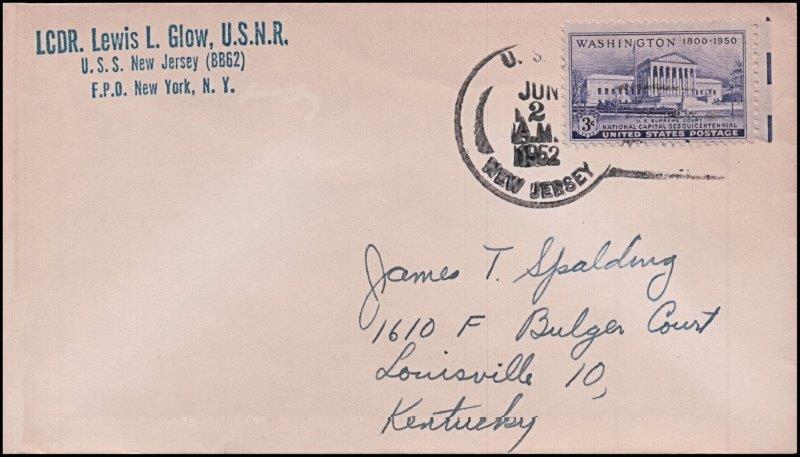 LCDR. Lewis L. Glow, U.S.N.R.
U.S.S. New Jersey (BB62)
F.P.O. New York, N.Y.
U. S.
JUN
2
A.M.
1952
NEW JERSEY
WASHINGTON 1800-1950
U.S. SUPREME COURT
NATIONAL CAPITAL SESQUICENTENNIAL
3¢ UNITED STATES POSTAGE
James T. Spalding
1610 F Bulger Court
Louisville 10,
Kentucky